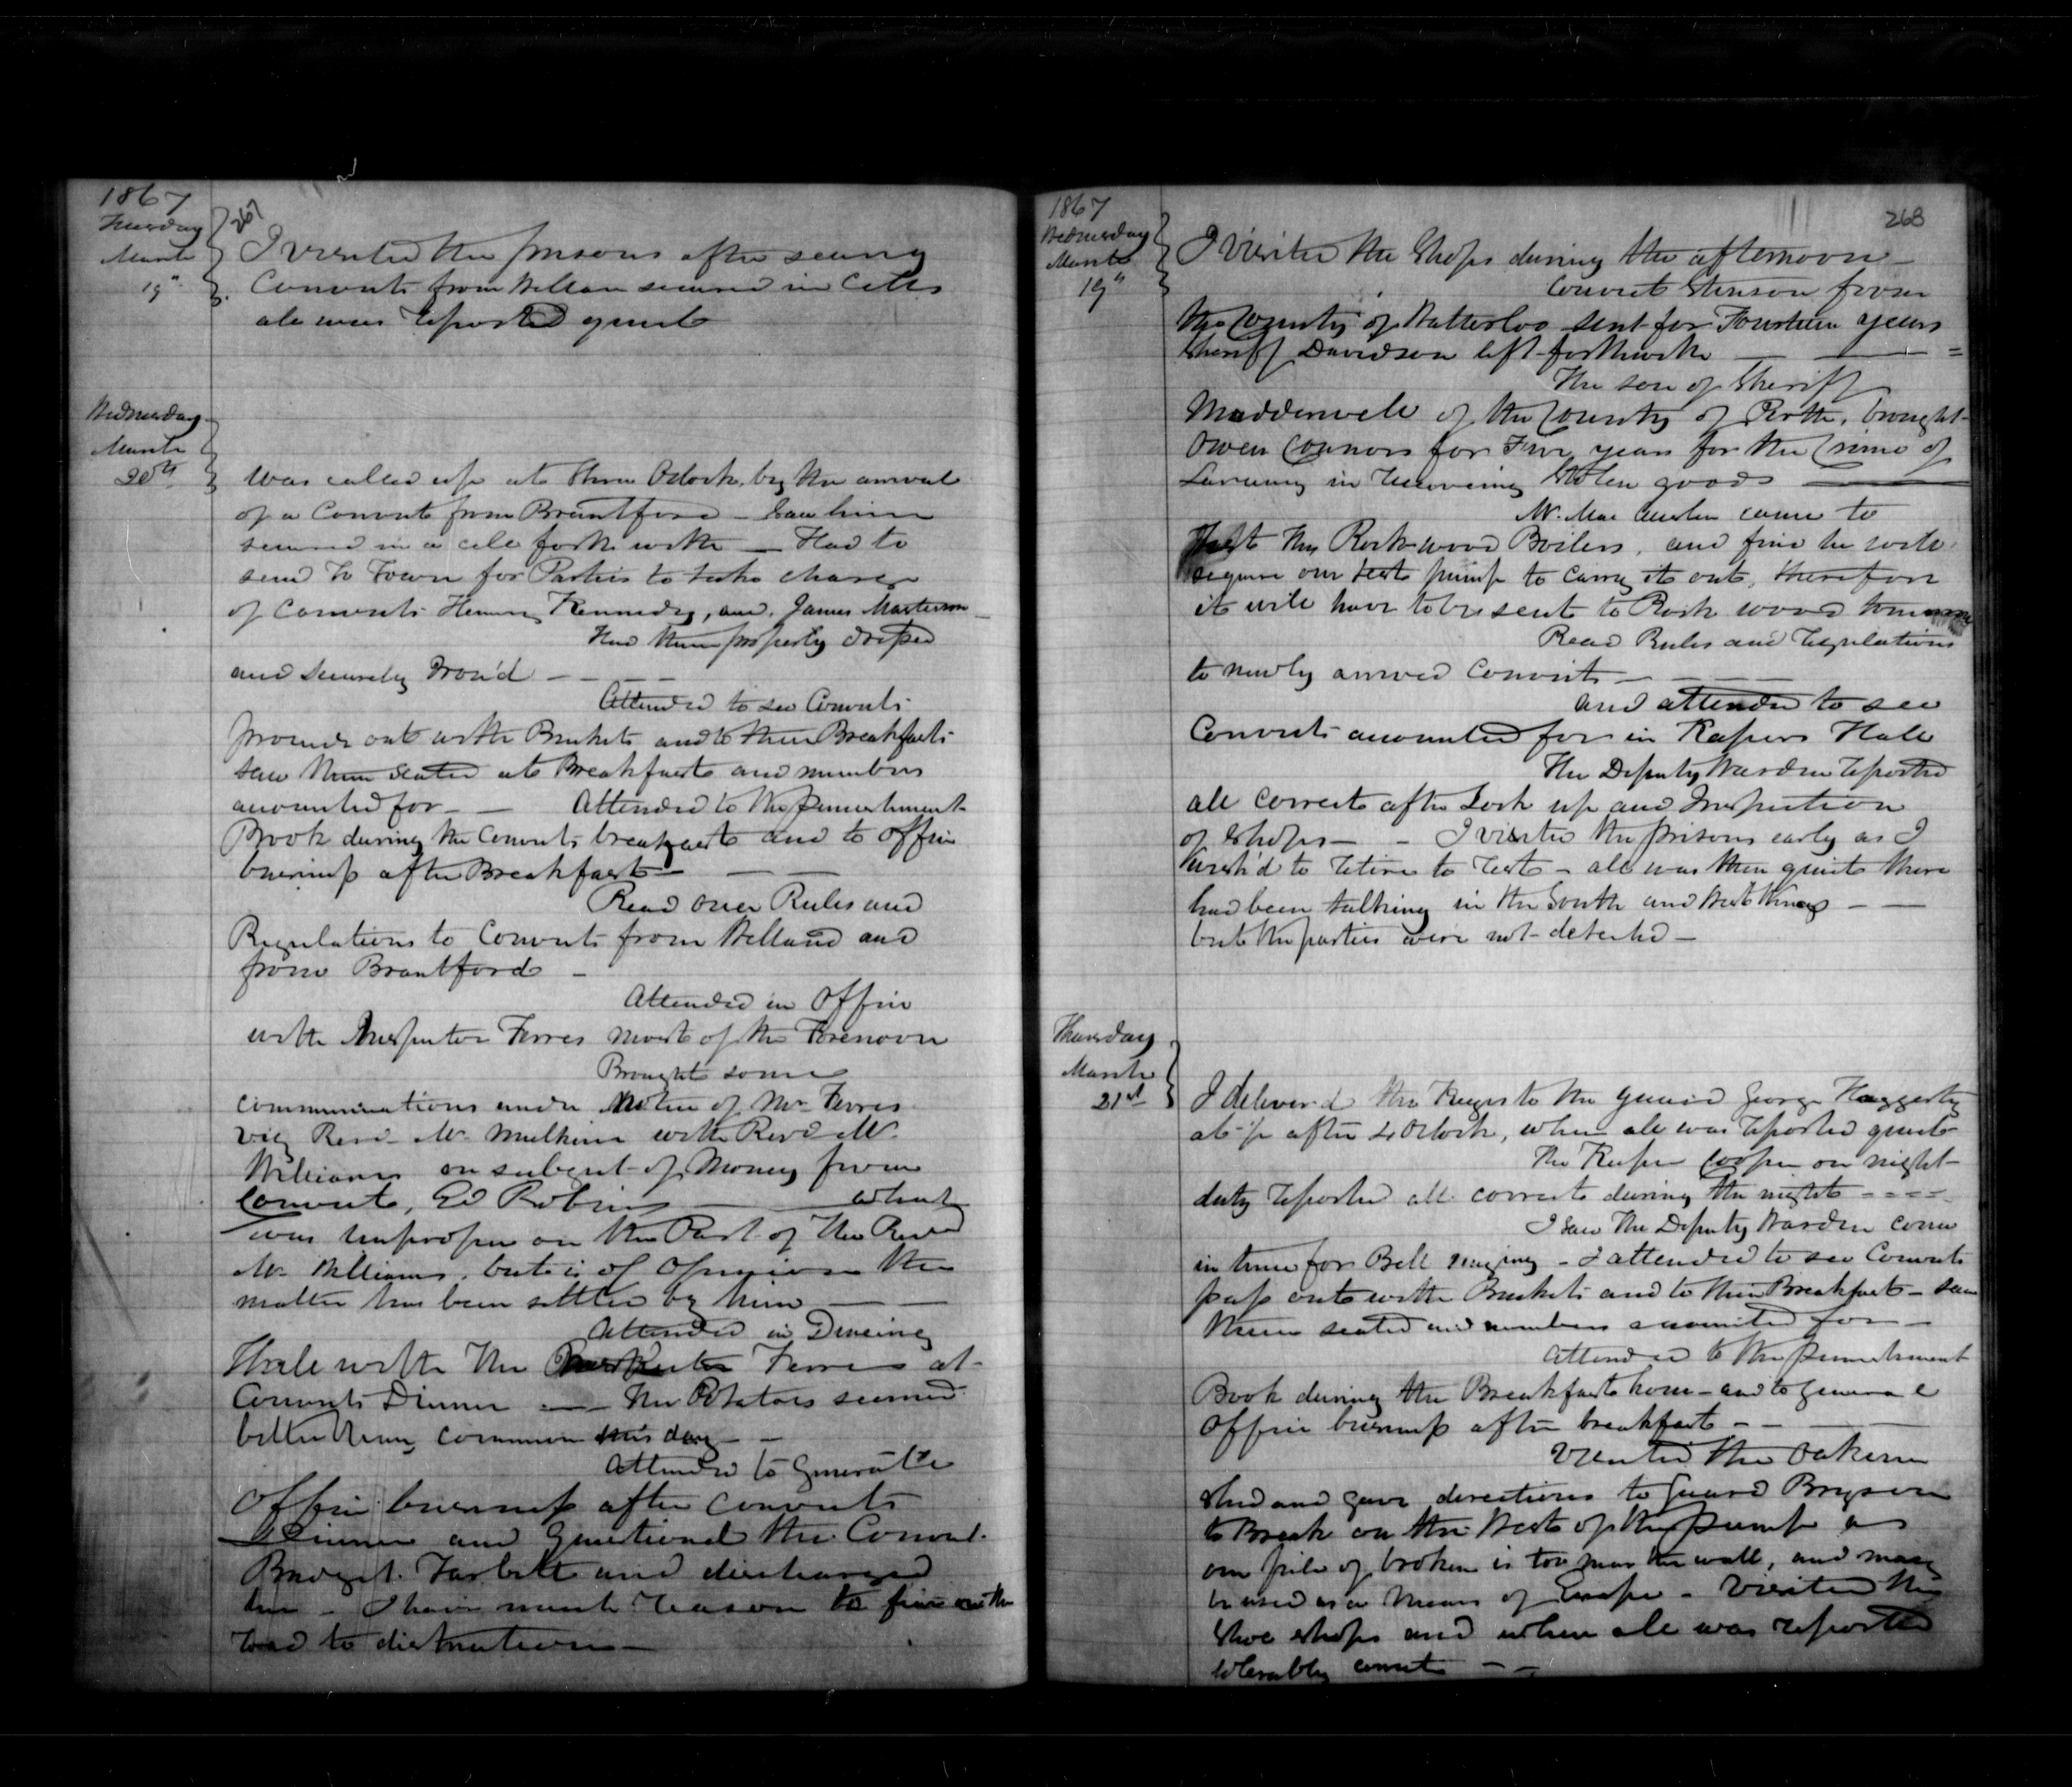 1867
267
Tuesday
March
19"
I visited the prisons after seeing
Convicts from Welland secured in Cells
all was reported quiet
Wednesday
March
20th
Was called up at three Oclock, by the arrival
of a Convict from Brantford – Saw him
secured in a cell forthwith — Had to
send to Town for Parties to take charge
of Convicts Henry Kennedy, and James Masterson
Had them properly dressed
and securely Iron'd – – –
Attended to see Convicts
proceed out with Buckets and to their Breakfasts
saw them seated at Breakfast and numbers
accounted for – – Attended to the punishment
Book during the Convicts breakfast and to office
business after Breakfast – – –
Read over Rules and
Regulations to Convicts from Welland and
from Brantford –
Attended in Office
with Inspector Ferres most of the Forenoon
Brought some
communications under Notice of Mr Ferres
viz Revd Mr Mulkins with Revd Mr
Williams on subject of Money from
Convict, Ed Robins — what
was improper on the Part of the Revd
Mr Williams, but is of Opinion the
matter has been settled by him — —
Attended in Dineing
Hall with the Inspector Ferres at
Convicts Dinner — The Potatoes seemed
better than common this day – –
Attended to General
Office business after Convicts
Dinner and questioned the Convict
Bridget Tarbett and discharged
her – I have much reason to fear on the
road to distruction –
1867
268
Wednesday
March
19"
I visited the Shops during the afternoon –
Convict Stinson from
the County of Watterloo sent for Fourteen years
Sheriff Davidson left forthwith — — =
The son of Sheriff
Modderwell of the County of Perth, brought
Owen Connors for Five years for the Crime of
Larceny in Receiving Stolen goods —
Mr. Mac came to
Test the Rockwood Boilers, and find he will
require our test pump to carry it out, therefore
it will have to be sent to Rock wood tomorrow
Read Rules and regulations
to newly arrived Convicts – – –
and attended to see
Convicts accounted for in Keepers Hall
The Deputy Warden reported
all correct after Lock up and Inspection
of Shops – – I visited the prisons early as I
wish'd to retire to rest – all was then quiet there
had been talking in the South and West Wings – –
but the parties were not detected –
Thursday
March
21st
I deliver'd the Keys to the guard George Haggerty
at ½ after 4 Oclock, when all was reported quiet
The Keeper Cooper on night
duty reported all correct during the night - - - -
I saw the Deputy Warden come
in time for Bell ringing – I attended to see Convicts
pass out with Buckets and to their Breakfast – saw
them seated and numbers accounted for –
Attended to the punishment
Book during the Breakfast hour – and to general
Office business after breakfast – –
Visited the Oakum
shed and gave directions to Guard Bryson
to Break on the West of the pump as
our pile of broken is too near the wall, and may
be used as a means of Escape – Visited the
Shoe shops and when all was reported
tolerably correct – –